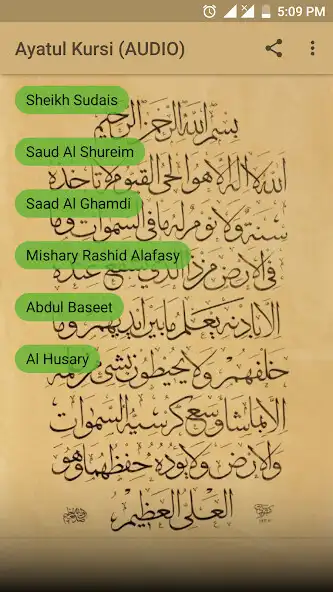 5:09 PM
Ayatul Kursi (AUDIO)
Sheikh Sudais
بسم الله الرحمن الرحيم
Saud Al Shureim
الله لا اله الا هو الحي القيوم لا تاخذه
Saad Al Ghamdi
سنة ولا نوم له ما في السموات وما
Mishary Rashid Alafasy
في الارض من ذا الذي يشفع عنده
Abdul Baseet
الا باذنه يعلم ما بين ايديهم وما
Al Husary
خلفهم ولا يحيطون بشئ من علمه
الا بما شاء وسع كرسيه السموات
والارض ولا يوده حفظهما وهو
العلي العظيم